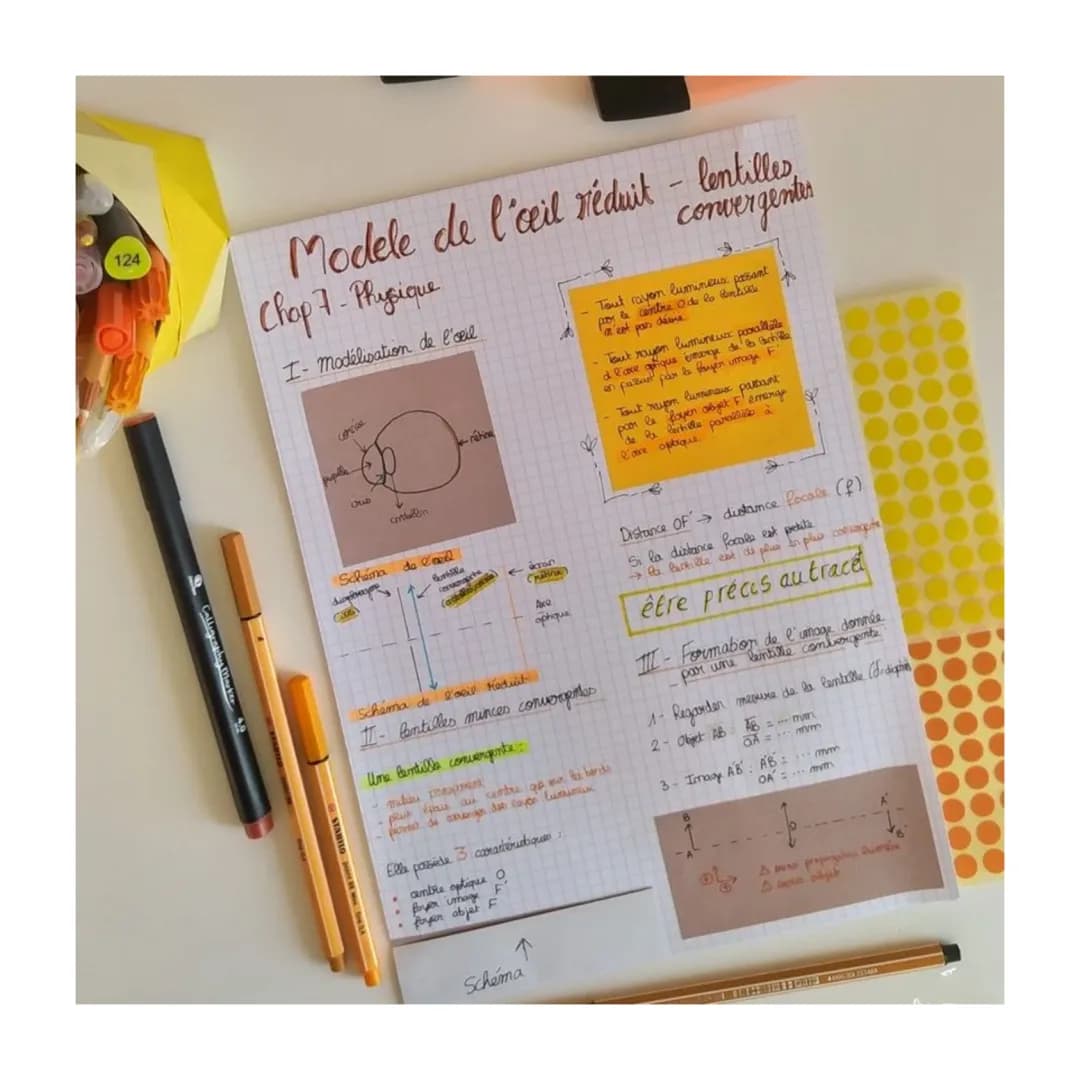 Modele de l'œil réduit - lentilles
convergentes
Chap 7 - Physique
I - Modélisation de l'œil
cornée
pupille
iris
cristallin
rétine
Schéma de l'œil
diaphragme
(iris)
lentille
convergente
écran
(rétine)
Axe
optique
Schéma de l'œil réduit
II - lentilles minces convergentes
Une lentille convergente :
- milieu transparent
- plus épais au centre que sur les bords
- permet de converger des rayon lumineux
Elle possède 3 caractéristiques :
• centre optique O
• foyer image F'
• foyer objet F
Schéma
- Tout rayon lumineux passant
par le centre O de la lentille
n'est pas dévié
- Tout rayon lumineux parallèle
à l'axe optique émerge de la lentille
en passant par le foyer image F'
- Tout rayon lumineux passant
par le foyer objet F émerge
de la lentille parallèle à
l'axe optique
Distance OF' → distance focale (f)
Si la distance focale est petite
→ la lentille est de plus en plus convergente
être précis au tracé
III - Formation de l'image donnée
par une lentille convergente
1 - Regarder mesure de la lentille
2 - Objet AB : AB = ... mm
OA = ... mm
3 - Image A'B' : A'B' = ... mm
OA' = ... mm
B
A
O
A'
B'
124
Calligraphy Marker
STABILO
STABILO point 88